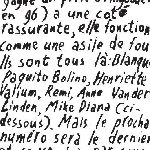 gagné un prix
en 96) a une côté
rassurante, elle fonction
comme une asile de fou
Ils sont tous là: Blanque
Paquito Bolino, Henriette
Valium, Remi, Anne Vander
Linden, Mike Diana (ci-
dessous). Mais le procha
numéro sera le dernier